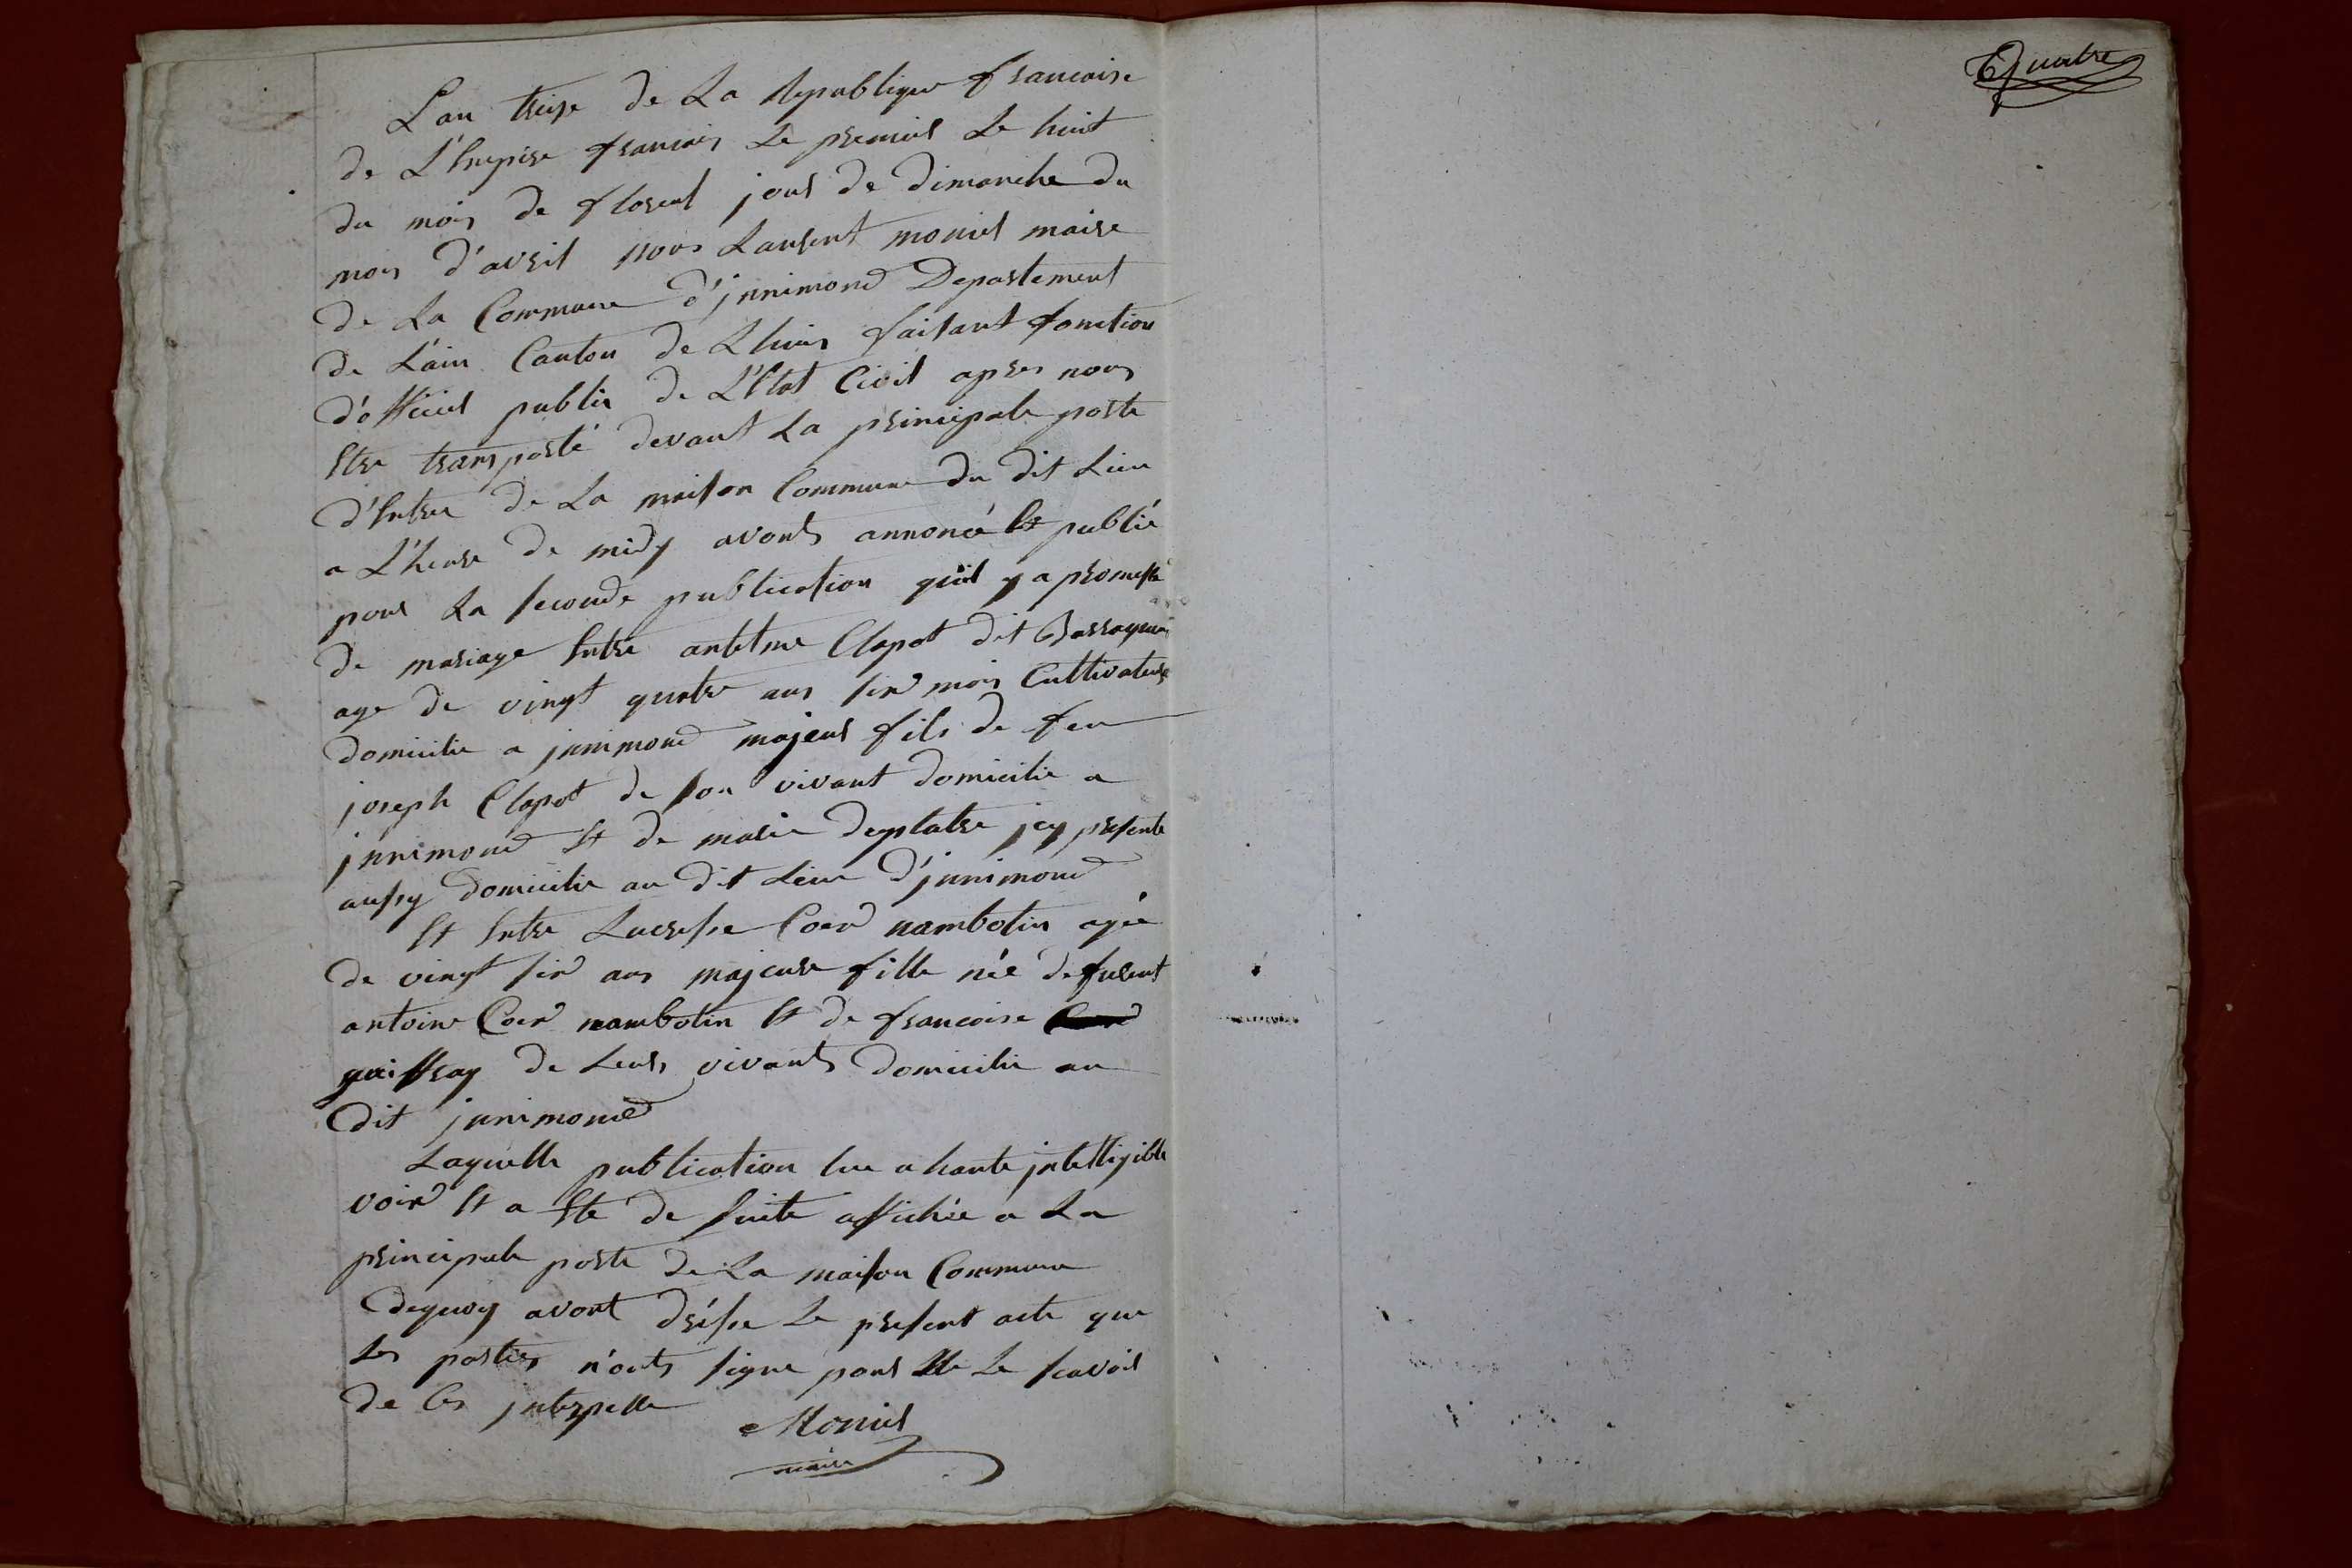 Quatre
L'an treize de La Republique francaise
de L'Empire francais Le premier Le huit
du mois de floreal jour de dimanche du
mois d'avril nous Laurent monier maire
de La Commune d'jnnimond Departement
de L'ain Canton de Lhuis faisant fonction
d'officier public de L'Etat Civil apres nous
Etre transporté devant La principale porte
d'Entree de La maison Commune du dit Lieu
a L'heure de midy avonts annoncé Et publié
pour La seconde publication quil y a promesse
de mariage Entre antelme Clapot dit
age de vingt quatre ans six mois Cultivateur
domicilie a jnnimond majeur fils de feu
joseph Clapot de son vivant domicilie a
jnnimond Et de marie deplatre jcy presente
aussy domicilie au dit Lieu d'jnnimond
Et Entre Lucresse Coux nambotin agée
de vingt six ans majeure fille née de furent
antoine Coux nambotin Et de francoise
de Leurs vivants domicilie au
dit jnnimond
Laquelle publication lue a haute jntelligible
voix Et a Ete de suite affichée a La
principale porte de La maison Commune
dequoy avont drésse Le present acte que
Les parties n'onts signe pour Ne Le scavoir
de Ces jnterpelle
Monier
maire